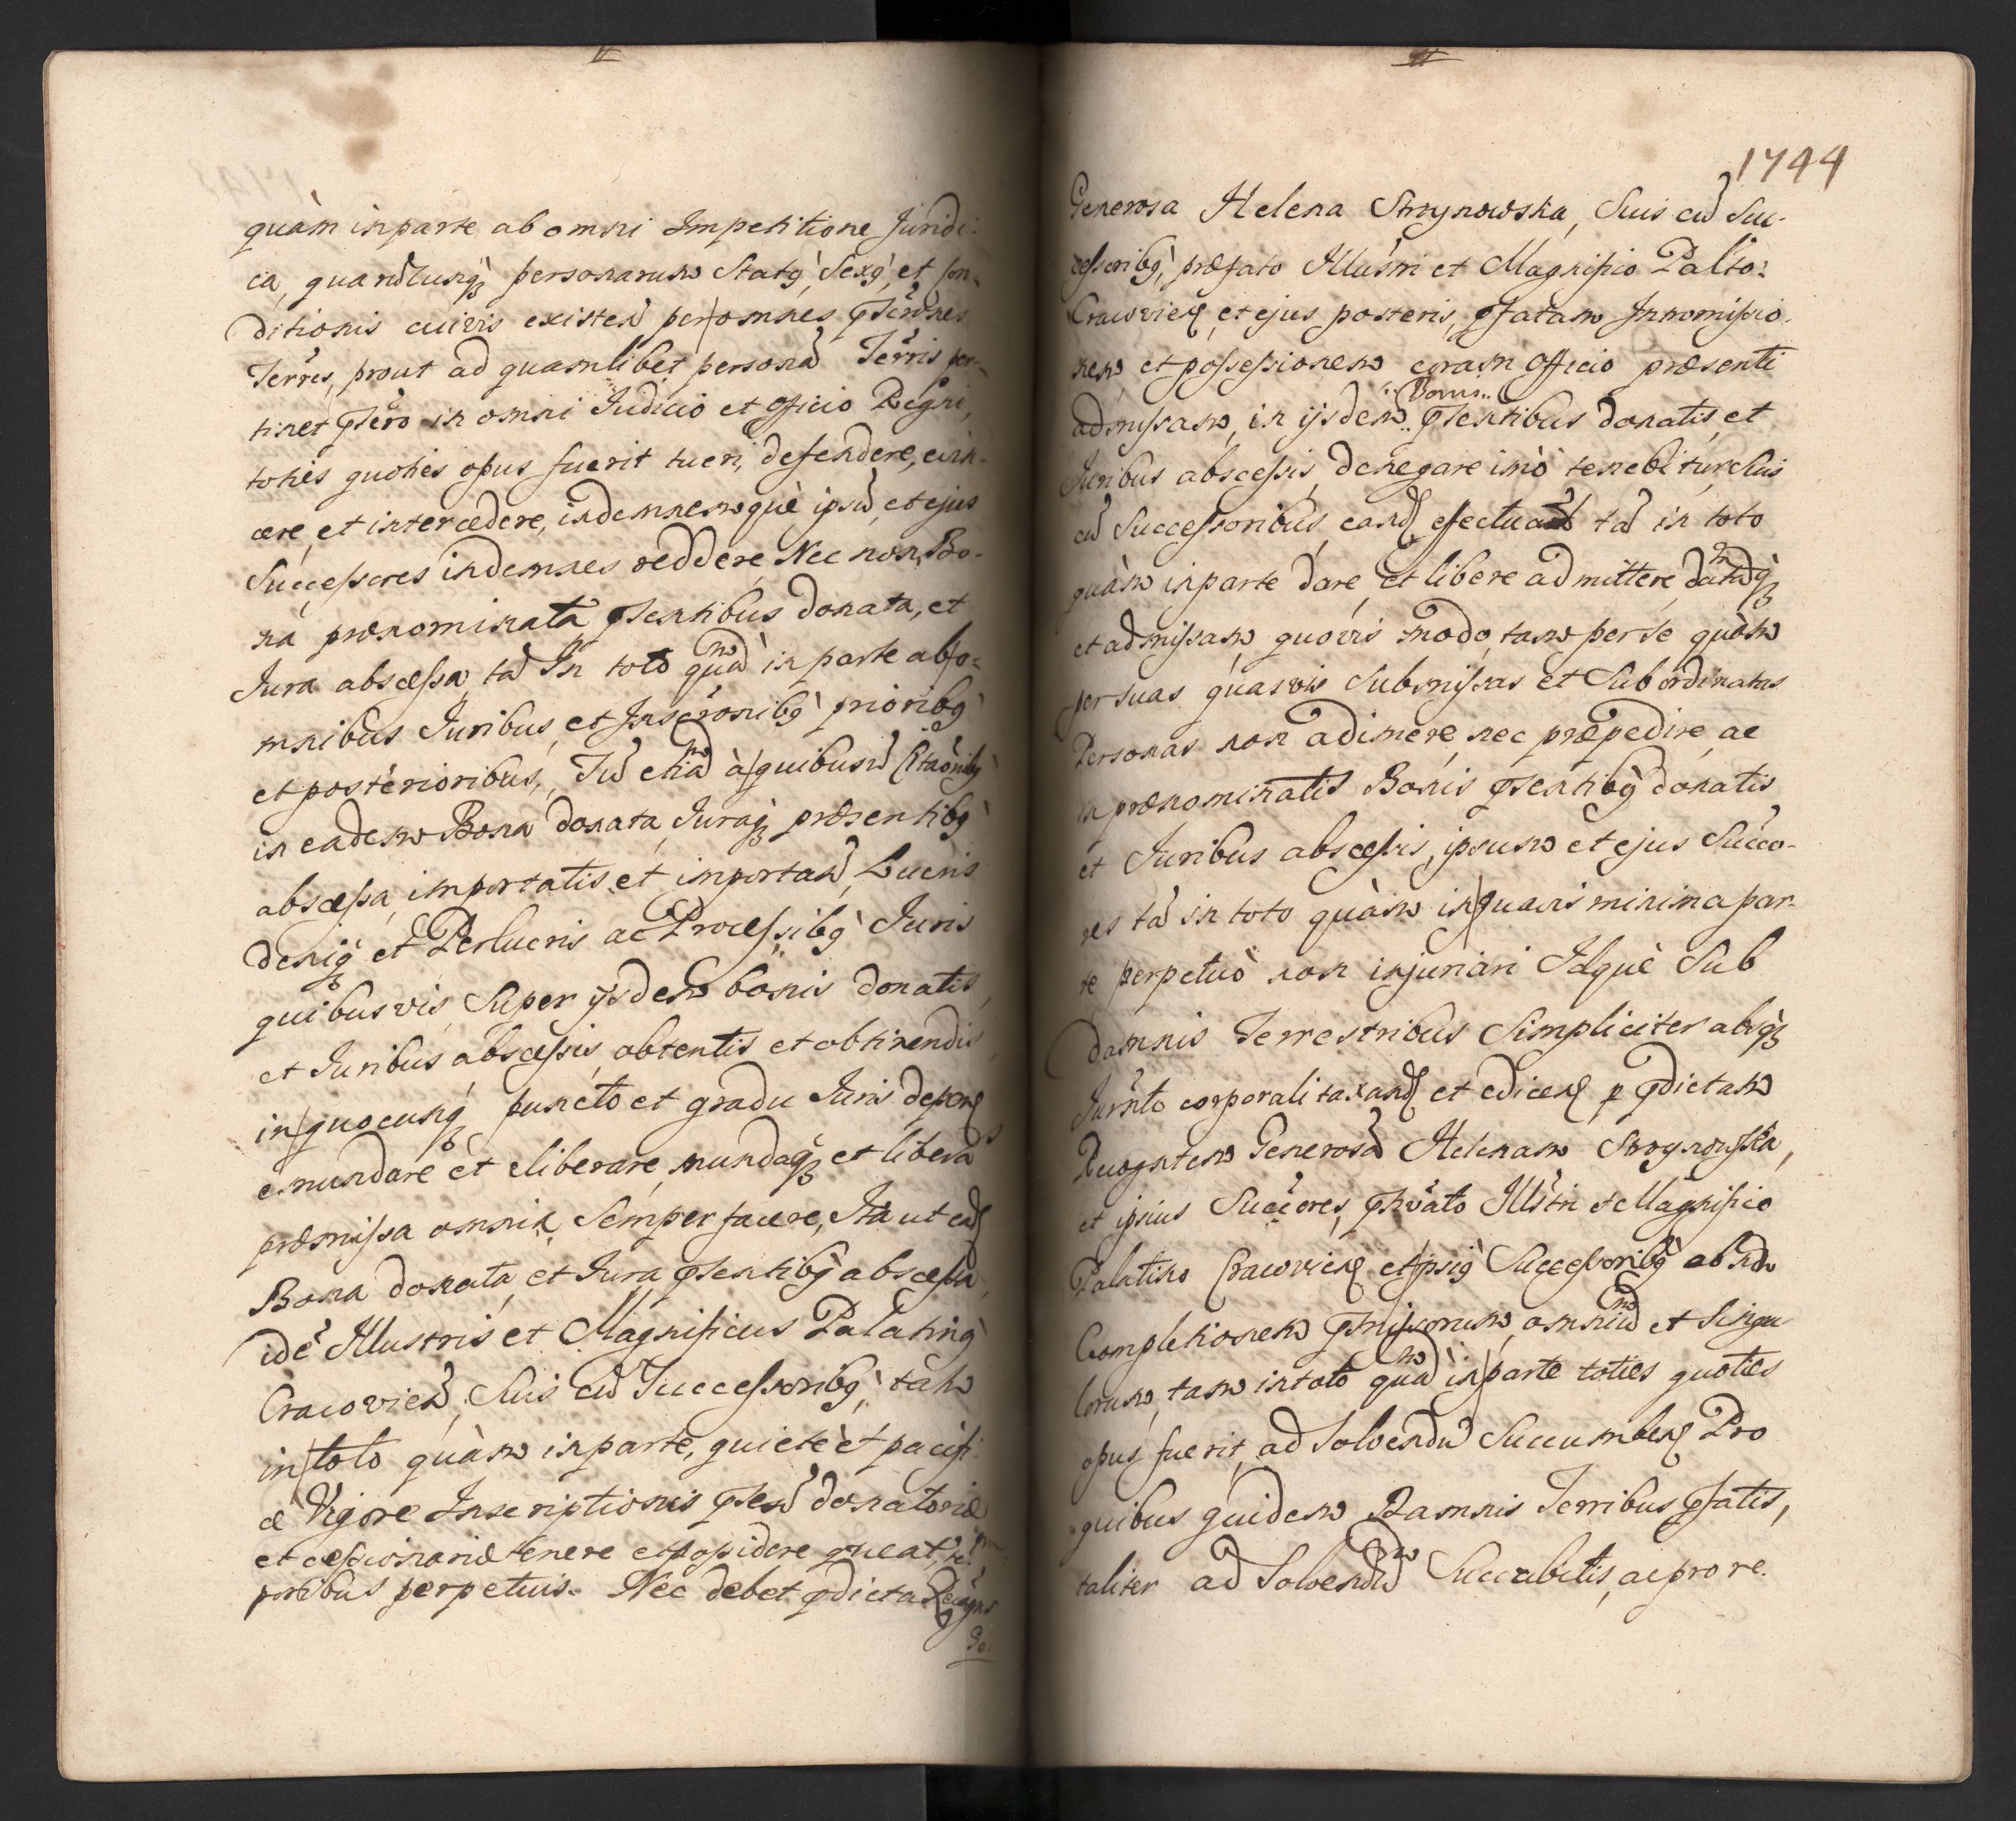 quàm in parte ab omni Impetitione Juridi-
ca, quarũcunq́ personarum Statq́, Sexq́, et Con-
ditionis cuivis existeñ per omnes
Terres, prout ad quamlibet personã Terris per-
tinet in omni Judicio et Officio Regni,
toties quoties opus fuerit tueri, defendere, evin-
cere, et intercedere, indemnemquè ipsũ, et ejus
Successores indemnes reddere, Nec non, Bo-
na prænominata psentibus donata, et
Jura abscessa, tã In toto quã in parte ab o-
mnibus Juribus, et Inscrõnibq́ prioribq́
et posterioribus, Tũ etiã à quibusũ Citaõnibq́
in eadem Bona donata, Juraq́ præsentibq́
abscessa, importatis et importañ, Lucris
deniq́ et Perlucris ac Processibq́ Juris
quibusvis, Super ijsdem bonis donatis,
et Juribus abscessis, obtentis et obtinendis,
in quocunq́ puncto et gradu Juris depeñ
emundare et eliberare, mundaq́ et libera
præmissa omnia, Semper facere, Ita ut eañ
Bona donata, et Jura psentibq́ abscessa,
idē Illustris et Magnificus Palatinq́
Cracovieñ, Suis cũ Successoribq́, tam
in toto quàm in parte, quietè et pacifi-
cè Vigore Inscriptionis pseñ donatoriæ
et cessionariæ tenere et possidere queat, tē-
poribus perpetuis. Nec debet pdicta Recogns
Ge-
1744
Generosa Helena Stroynowska, Suis cũ Suc-
cessoribq́, præfato Illustri et Magnifico Palto:
Cracovieñ, et ejus posteris, pfatam Intromissio-
nem et possessionem coram Officio præsenti
Bonis
admissam, in ijsdem psentibus donatis, et
Juribus abscessis, denegare imò tenebitur, Suis
cũ Successoribus, eanđ effectuañ tã in toto
quàm in parte dare, et libere admittere, datãq́
et admissam, quovis modo, tam per se quàm
per suas quasvis Submissas et Subordinatas
Personas non adimere, nec præpedire, ac
in prænominatis Bonis psentibq́ donatis
et Juribus abscessis, ipsum et ejus Succo-
res tã in toto quàm in quavis minima par-
te perpetuò non injuriari Idquè Sub
damnis Terrestribus Simpliciter absq́
Jurnto corporali taxanđ et ediceñ p pdictam
Recogntem Generosã Helenam Stroynowska,
et ipsius Succores, Illustri et Magnifico
Palatino Cracovieñ et ipsiq́ Successoribq́ ob
Completionem pmissorum, omniũ et Singu-
lorum, tam in toto quã in parte toties quoties
opus fuerit, ad Solvendũ Succumbeñ Pro
quibus quidem Damnis Terribus pfatis,
taliter ad Solvendũ Succubitis, ac pro re.